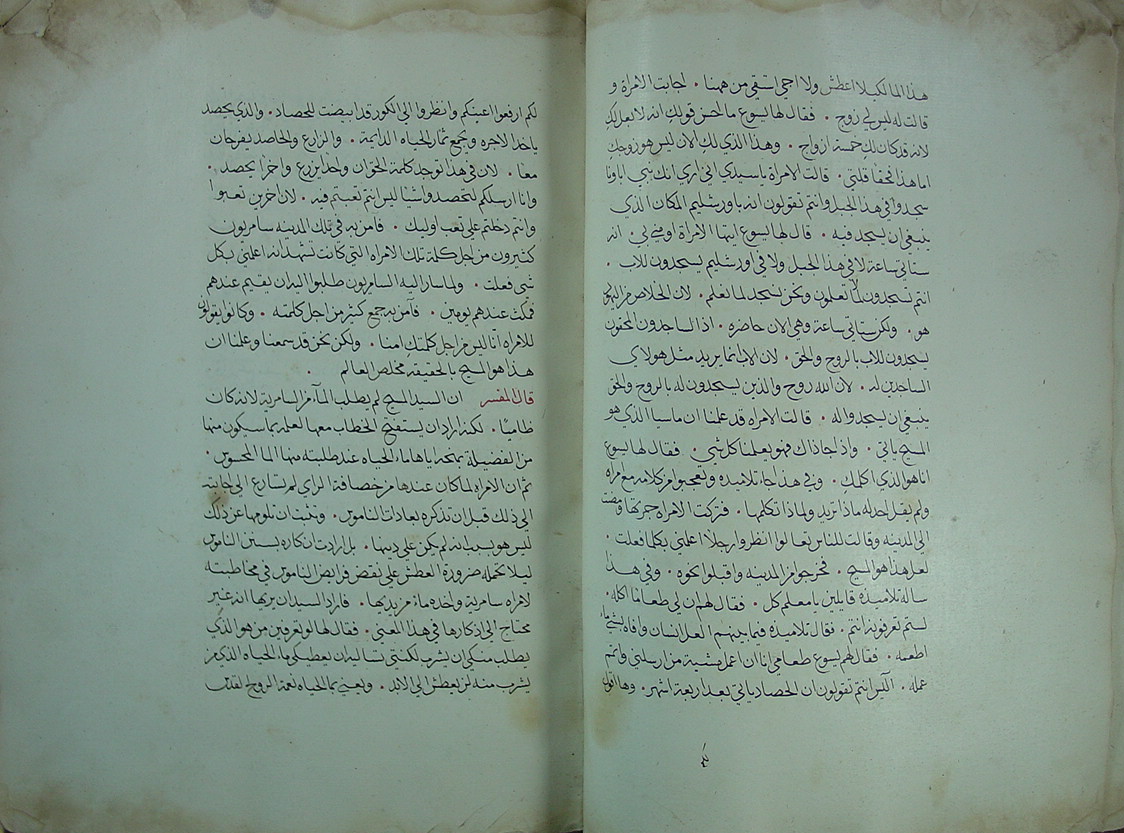 هذا الما لكيلا اعطش ولا اجي استقي من ههنا ٠ اجابت الامراة و
قالت له ليس لي زوج ٠ فقال لها يسوع ما احسن قولك انه لا بعل لك
لانه قد كان لك خمسة ازواج ٠ وهذا الذي لك الان ليس هو زوجك
اما هذا فحقا قلتي ٠ قالت الامراة يا سيدي اني اري انك نبي اباونا
سجدوا في هذا الجبل وانتم تقولون انه باورشليم المكان الذي
ينبغي ان يسجد فيه ٠ قال لها يسوع ايتها الامراة اومني بي ٠ انه
ستاتي ساعة لا في هذا الجبل ولا في اورشليم يسجدون للاب ٠
انتم تسجدون لما لا تعلمون ونحن نسجد لما نعلم ٠ لان الخلاص من اليهود
هو ٠ ولكن ستاتي ساعة وهي الان حاضره ٠ اذا الساجدون المحقون
يسجدون للاب بالروح والحق ٠ لان الاب انما يريد مثل هولاي
الساجدين له ٠ لان الله روح والذين يسجدون له بالروح والحق
ينبغي ان يسجدوا له ٠ قالت الامراه قد علمنا ان ماسيا الذي هو
المسيح ياتي ٠ واذا جا ذاك فهو يعلمنا كل شي ٠ فقال لها يسوع
انا هو الذي اكلمك ٠ وفي هذا جا تلاميذه وتعجبوا من كلامه مع امراة
ولم يقل احد له ماذا تريد ولماذا تكلمها ٠ فتركت الامراه جرتها ومضت
الي المدينه وقالت للناس تعالوا انظروا رجلا اعلمني بكلما فعلت ٠
لعل هذا هو المسيح ٠ فخرجوا من المدينه واقبلوا نحوه ٠ وفي هذا
ساله تلاميذه قايلين يا معلم كل ٠ فقال لهم ان لي طعاما اكله ٠
لستم تعرفونه انتم ٠ فقال تلاميذه فيما بينهم العل انسان وافاه بشي
اطعمه ٠ فقال لهم يسوع طعامي انا ان اعمل مشية من ارسلني واتمم
عمله ٠ اليس انتم تقولون ان الحصاد ياتي بعد اربعة اشهر ٠ وها اقول
لكم ارفعوا اعينكم وانظروا الي الكور قد ابيضت للحصاد ٠ والذي يحصد
ياخذ الاجره ويجمع ثمار الحياه الدايمة ٠ والزارع والحاصد يفرحان
معا ٠ لان في هذا توجد كلمة الحق ان واحدا يزرع واخر يحصد ٠
وانا ارسلكم لتحصدوا شيا ليس انتم تعبتم فيه ٠ لان اخرين تعبوا
وانتم دخلتم علي تعب اوليك ٠ فامن به في تلك المدينه سامريون
كثيرون من اجل كلمة تلك الامراه التي كانت تشهد انه اعلمني بكل
شي فعلت ٠ ولما سار اليه السامريون طلبوا اليه ان يقيم عندهم
فمكث عندهم يومين ٠ فآمن به جمع كثير من اجل كلمته ٠ وكانوا يقولون
للامراه اننا ليس من اجل كلمتك امنا ٠ ولكن نحن قد سمعنا وعلمنا ان
هذا هو المسيح بالحقيقه مخلص العالم ٠
قال المفسر ان السيد المسيح لم يطلب الما من السامرية لانه كان
ظاميا ٠ لكنه اراد ان يستفتح الخطاب معها لعلمه بما سيكون منها
من الفضيلة بمنحه اياها ماء الحياه عند طلبته منها الما المحسوس ٠
ثم ان الامراه لما كان عندها من حصافة الراي لم تسارع الي اجابته
الي ذلك قبل ان تذكره بعادات الناموس ٠ وتثبت ان تلومها عن ذلك
ليس هو بسبب انه لم يكن علي دينها ٠ بل ارادت اذكاره بسنن الناموس
ليلا تحمله ضرورة العطش علي نقض فرايض الناموس في مخاطبته
لامراه سامرية واخذه ماء من يديها ٠ فاراد السيد ان يريها انه غير
محتاج الي اذكارها في هذا المعني ٠ فقال لها لو تعرفين من هو الذي
يطلب منكي ان يشرب لكنتي تسالي ان يعطيكي ماء الحياه الذي من
يشرب منه لن يعطش الي الابد ٠ ويعني بما الحياه نعمة الروح القدس